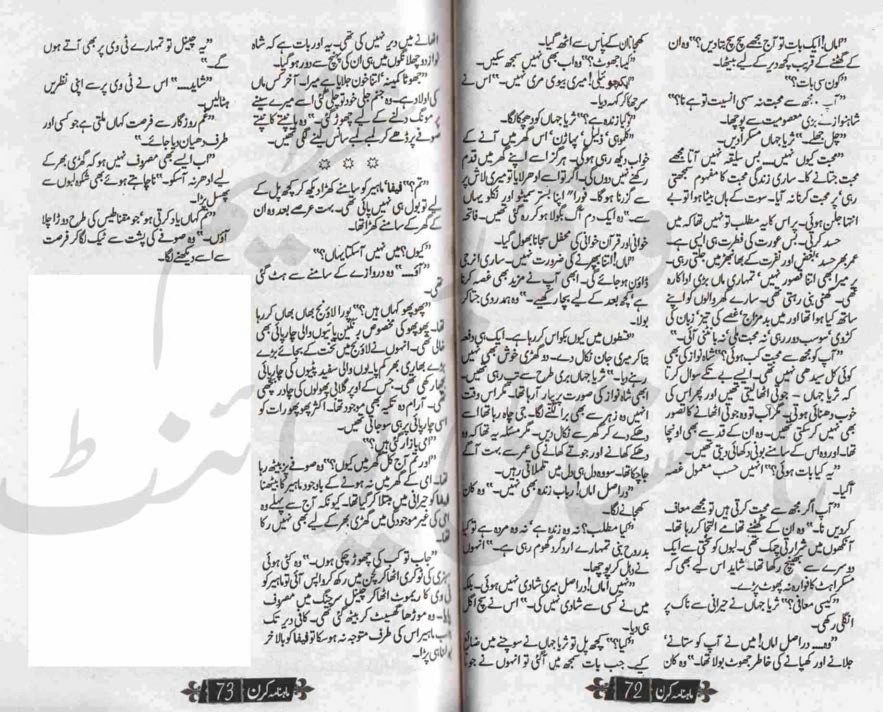 "اماں! ایک بات تو آج مجھے سچ سچ بتا دیں؟" وہ ان
کے گھٹنے کے قریب کچھ دیر کے لیے بیٹھا۔
"کون سی بات؟"
"آپ مجھ سے محبت نہ سہی انسیت تو ہے نا؟"
شاہنواز نے بڑی معصومیت سے پوچھا۔
"چل ہٹے۔" ثریا جہاں مسکرا دیں۔
"محبت کیوں نہیں۔۔۔ بس سلیقہ نہیں آتا مجھے
محبت جتانے کا۔ ساری زندگی محبت کا مفہوم سمجھتی
رہی' پر محبت کرنا نہ آیا۔ سوت کے ہاں بیٹا ہوا تو بے
انتہا جلن ہوئی۔ پر اس کا یہ مطلب تو نہیں تھا کہ میں
حسد کرتی۔ بس عورت کی فطرت ہی ایسی ہے۔
عمر بھر حسد' بغض اور نفرت کے بھانبھڑ میں جلتی رہی۔
پر میرا بھی اتنا قصور نہیں' تمہاری ماں بڑی اداکارہ
تھی۔ گھنی بنی رہتی تھی۔ سارے گھر والوں کو اپنے
ساتھ کیا ہوا تھا اور میں بد مزاج' غصے کی تیز' زبان کی
کڑوی' سو سب دور رہی نہ محبت ملی' نہ بانٹنی آئی۔"
"آپ کو مجھ سے محبت کب ہوئی؟" شاہ نواز کی بھی
کوئی کل سیدھی نہیں تھی۔ ایسے بے تکے سوال کرتا
کہ ثریا جہاں - جوتی اٹھا لیتی تھیں اور پھر اس کی
خوب دھنائی ہوتی۔ مگر اب تو وہ جوتی اٹھانے کا تصور
بھی نہیں کر سکتی تھیں۔ وہ ان کے قد سے بھی اونچا
تھا۔ اور وہ اس کے سامنے بونی دکھائی دیتی تھیں۔
"یہ کیا بات ہوئی؟" انہیں حسب معمول غصہ
آ گیا۔
"آپ اگر مجھ سے محبت کرتی ہیں تو مجھے معاف
کر دیں نا۔" وہ ان کے گھٹنے تھامے التجا کر رہا تھا۔
آنکھوں میں شرارتی چمک تھی۔ لبوں کو سختی سے ایک
دوسرے سے بھینچ رکھا تھا۔ شاید اس لیے بھی کہ
مسکراہٹ کا فوارہ نہ پھوٹ پڑے۔
"کیسی معافی؟" ثریا جہاں نے حیرانی سے ناک پر
انگلی رکھی۔
"وہ۔۔۔ دراصل اماں! میں نے آپ کو ستانے'
جلانے اور کھپانے کی خاطر جھوٹ بولا تھا۔" وہ کان
کھجاتا ان کے پاس سے اٹھ گیا۔
"کیا جھوٹ؟" وہ اب بھی نہیں سمجھ سکیں۔
میری بیوی مری نہیں۔" اس نے
سر جھکا کر کہہ دیا۔
"کیا زندہ ہے؟" ثریا جہاں کو دھچکا لگا۔
"کلموہی' ذلیل' اس گھر میں آنے کے
خواب دیکھ رہی ہوگی۔ ہرگز اسے اپنے گھر میں قدم
رکھنے نہیں دوں گی۔ اگر تو اسے ادھر لایا تو میری لاش پر
سے گزرنا ہوگا۔ فورا" اپنا بستر سمیٹو اور نکلو یہاں
سے۔" وہ ایک دم آگ بگولا ہو کر رہ گئی تھیں۔ فاتحہ
خوانی اور قرآن خوانی کی محفل سجانا بھول گیا۔
"اماں! اتنا بھڑکنے کی ضرورت نہیں۔ ساری انرجی
ڈاؤن ہو جائے گی۔ ابھی آپ نے مزید بھی غصہ کرنا
ہے' کچھ بعد کے لیے بچا رکھیے۔" وہ ہمدردی جتا کر
بولا۔
"قسطوں میں کیوں بکواس کر رہا ہے۔ ایک ہی دفعہ
بتا کر میری جان نکال دے۔ دو گھڑی خوش بھی نہیں
رہنے دیا۔" ثریا جہاں بری طرح سے تپ رہی تھیں۔
ابھی شاہ نواز کی صورت پر پیار آ رہا تھا۔ مگر اس وقت
انہیں وہ زہر سے بھی برا لگنے لگا۔ جی چاہ رہا تھا اسے
دھکے دے کر گھر سے نکال دیں۔ مگر مسئلہ یہ تھا کہ وہ
دھکے کھانے اور جوتے کھانے کی عمر سے بہت آگے
جا چکا تھا۔ سو وہ دل ہی دل میں تلملاتی رہیں۔
"دراصل اماں! رباب زندہ بھی نہیں۔" وہ کان
کھجانے لگا۔
"کیا مطلب؟ نہ وہ زندہ ہے نہ وہ مردہ ہے تو کیا
بدروح بنی تمہارے ارد گرد گھوم رہی ہے۔" انہوں
نے دہل کر پوچھا۔
"نہیں اماں! دراصل میری شادی نہیں ہوئی۔ بلکہ
میں نے کسی سے شادی نہیں کی۔" اس نے سچ اگل
ہی دیا۔
"کیا؟" کچھ پل تو ثریا جہاں نے سوچنے میں ضائع
کیے۔ جب بات سمجھ میں آ گئی تو انہوں نے جوتا
ماہنامہ کرن 72
اٹھانے میں دیر نہیں کی تھی۔ یہ اور بات ہے کہ شاہ
نواز دو چھلانگوں میں ہی ان کی پہنچ سے دور ہو گیا۔
"جھوٹا کمینہ' اتنا خون جلایا ہے میرا۔ آخر کس ماں
کی اولاد ہے۔ وہ جنم جلی خود تو چلی گئی' اسے میرے سینے
پر مونگ دلنے کے لیے چھوڑ گئی۔" وہ ہانپتے کانپتے
صوفے پر ڈھے کر لمبے لمبے سانس لینے لگی تھیں۔
☼ ☼ ☼
"تم؟" فیفا' ماہیر کو سامنے کھڑا دیکھ کر کچھ پل کے
لیے تو بول ہی نہیں پائی تھی۔ بہت عرصے بعد وہ ان
کے گھر کے سامنے کھڑا تھا۔
"کیوں؟ میں نہیں آ سکتا یہاں؟"
"آؤ۔۔۔" وہ دروازے کے سامنے سے ہٹ گئی
تھی۔
"پھوپھو کہاں ہیں؟" پورا لاؤنج بھاں بھاں کر رہا
تھا۔ پھوپھو کی مخصوص رنگین پایوں والی چارپائی بھی
خالی تھی۔ انہوں نے لاؤنج میں تخت کے بجائے بڑے
بڑے بھاری بھرکم پایوں والی سفید پٹیوں کی چارپائی
بچھا رکھی تھی۔ جس کے اوپر گلابی پھولوں کی چادر بچھی
تھی۔ آرام دہ تکیہ بھی موجود تھا۔ اکثر پھوپھو رات کو
اسی چارپائی پر ہی سو جاتی تھیں۔
"امی بازار گئی ہیں؟"
"اور تم آج کل گھر میں کیوں؟" وہ صوفے پر بیٹھ رہا
تھا۔ امی کے گھر میں نہ ہونے کے باوجود ماہیر کا بیٹھنا
فیفا کو حیرانی میں مبتلا کر گیا تھا۔ کیونکہ آج سے پہلے وہ
امی کی غیر موجودگی میں گھڑی بھر کے لیے بھی نہیں رکا
تھا۔
"جاب تو کب کی چھوڑ چکی ہوں۔" وہ کٹی ہوئی
سبزی کی ٹوکری اٹھا کر کچن میں رکھ کر واپس آئی تو ماہیر کو
ٹی وی کا ریموٹ اٹھا کر چینل سرچنگ میں مصروف
پایا۔ وہ موڑھا گھسیٹ کر بیٹھ گئی تھی۔ کافی دیر تک
جب ماہیر اس کی طرف متوجہ نہ ہو سکا تو فیفا کو بالآخر
بولنا ہی پڑا۔
"یہ چینل تو تمہارے ٹی وی پر بھی آتے ہوں
گے۔"
"شاید۔۔۔" اس نے ٹی وی پر سے اپنی نظریں
ہٹالیں۔
"غم روزگار سے فرصت کہاں ملتی ہے جو کسی اور
طرف دھیان دیا جائے۔"
"اب ایسے بھی مصروف نہیں ہو کہ گھڑی بھر کے
لیے ادھر نہ آ سکو۔" نا چاہتے ہوئے بھی شکوہ لبوں سے
پھسل پڑا۔
"تم کہاں یاد کرتی ہو' جو مقناطیس کی طرح دوڑا چلا
آؤں۔" وہ صوفے کی پشت سے ٹیک لگا کر فرصت
سے اسے دیکھنے لگا۔
ماہنامہ کرن 73